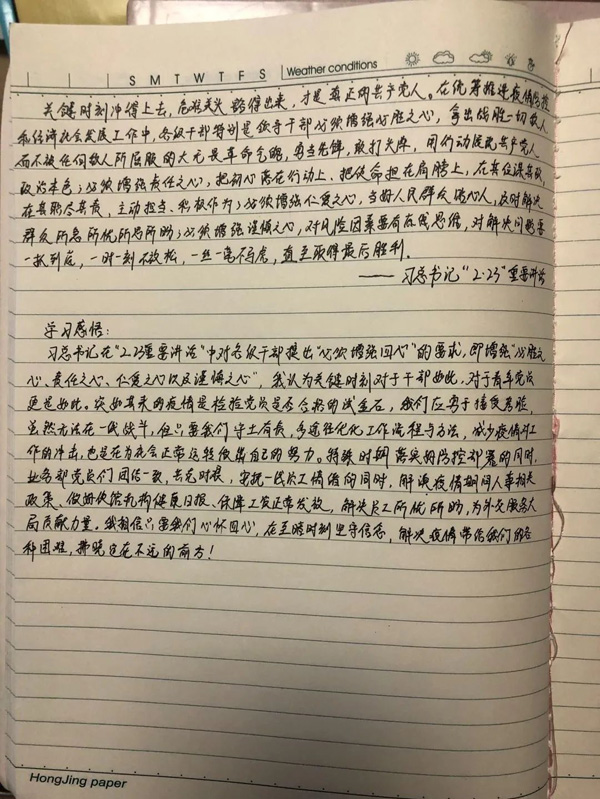 S M T W T F S Weather conditions
关键时刻冲得上去，危难关头豁得出来，才是真正的共产党人。在统筹推进疫情防控
和经济社会发展工作中，各级干部特别是领导干部必须增强必胜之心，拿出战胜一切敌人
而不被任何敌人所屈服的大无畏革命气魄，勇当先锋，敢打头阵，用行动展现共产党人
政治本色；必须增强责任之心，把初心落在行动上、把使命担在肩膀上，在其位谋其政，
在其职尽其责，主动担当、积极作为；必须增强仁爱之心，当好人民群众贴心人，及时解决
群众所急所忧所思所盼；必须增强谨慎之心，对风险因素要有底线思维，对解决问题要
一抓到底，一时一刻不放松，一丝一毫不马虎，直至取得最后胜利。
——习总书记“2·23”重要讲话
学习感悟：
习总书记在“2.23重要讲话”中对各级干部提出“必须增强四心”的要求，即增强“必胜之
心、责任之心、仁爱之心以及谨慎之心”，我认为关键时刻对于干部如此，对于青年党员
更是如此。突如其来的疫情是检验党员是否合格的试金石，我们应勇于接受考验，
虽然无法在一线战斗，但只要我们守土有责，多途径优化工作流程与方法，减少疫情对工
作的冲击，也是在为社会正常运转做出自己的努力。特殊时期落实的防控部署的同时，
业务部党员们团结一致，共克时艰，实现一线员工情绪向同时，解决疫情期间人事相关
政策、做好使馆机构健康日报、保障工资正常发放，解决员工所忧所盼，为外交服务大
局贡献力量。我相信只要我们心怀四心，在至暗时刻坚守信念，解决疫情带给我们的各
种困难，拂晓定在不远的前方！
HongJing paper